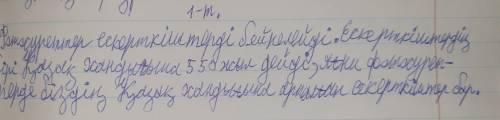 1-т.
Фотосуреттер ескерткіштерді бейнелейді. Ескерткіштердің
бірі Қазақ хандығына 550 жыл дейді, яғни фотосурет-
терде біздің Қазақ хандығына арналған ескерткіштер бар.